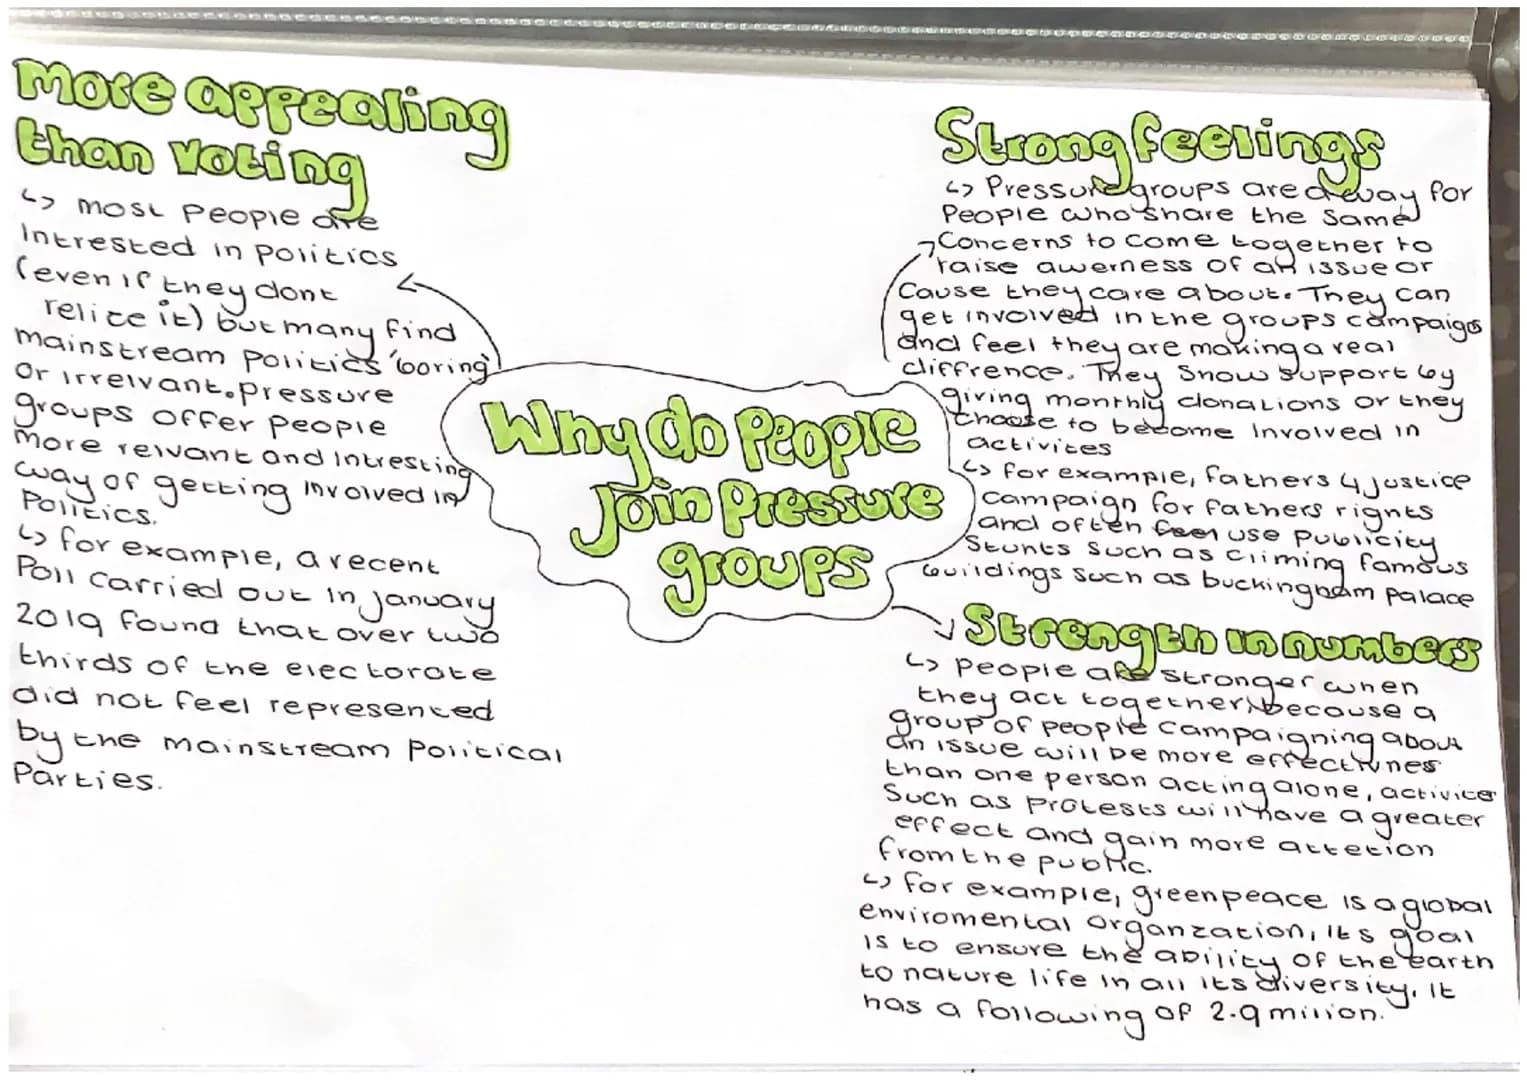 More appealing
than voting
↳ most People are
Intrested in Politics
(even if they dont
relize it) but many find
mainstream politics 'boring'
or irrelvant. Pressure
groups offer people
more relvant and Intresting
way of getting involved in
Politics.
↳ for example, a recent
Poll carried out in january
2019 found that over two
thirds of the electorate
did not feel represented
by the mainstream Political
Parties.
Why do People
Join Pressure
groups
Strong feelings
↳ Pressure groups are a way for
People who share the same
Concerns to come together to
raise awerness of an issue or
cause they care about. They can
get involved in the groups campaigs
and feel they are making a real
diffrence. They show support by
giving monthly donations or they
choose to become Involved in
activites
↳ for example, fathers 4 justice
campaign for fathers rights
and often use publicity
Stunts such as climing famous
buildings such as buckingham palace
Strength in numbers
↳ people are stronger when
they act together, because a
group of people campaigning about
an issue will be more effectivnes
than one person acting alone, activites
Such as protests will have a greater
effect and gain more attetion
from the public.
↳ for example, greenpeace is a global
enviromental organzation, its goal
is to ensure the ability of the earth
to nature life in all its diversity. It
has a following of 2.9 milion.